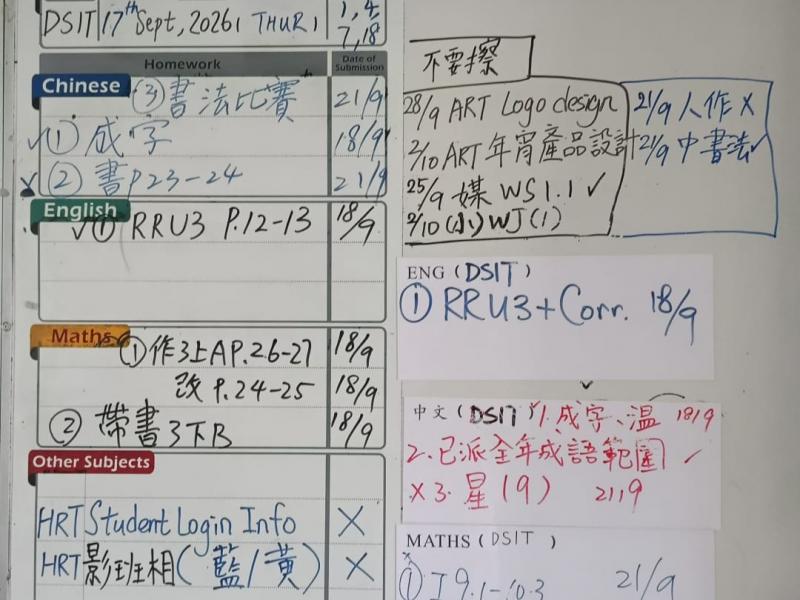 DSIT 17th Sept, 2026 (THUR) 1, 4, 7, 18
Homework Date of Submission
Chinese ③書法比賽 21/9
✓① 成字 18/9
✓② 書P23-24 21/9
English
✓① RRU3 P.12-13 18/9
Maths ①作3上A P.26-27 18/9
改 P.24-25 18/9
② 帶書3下B 18/9
Other Subjects
HRT Student Login Info X
HRT 影班相(藍/黃) X
不要擦
28/9 ART Logo design
2/10 ART 年宵產品設計
25/9 媒 WS1.1 ✓
2/10 (小) WJ(1)
21/9 人作 X
21/9 中書法✓
ENG (DSIT)
① RRU3+Corr. 18/9
中文 (DSIT) 1. 成字、溫 18/9
2. 已派全年成語範圍 ✓
X 3. 星(9) 21/9
MATHS (DSIT)
① 21/9